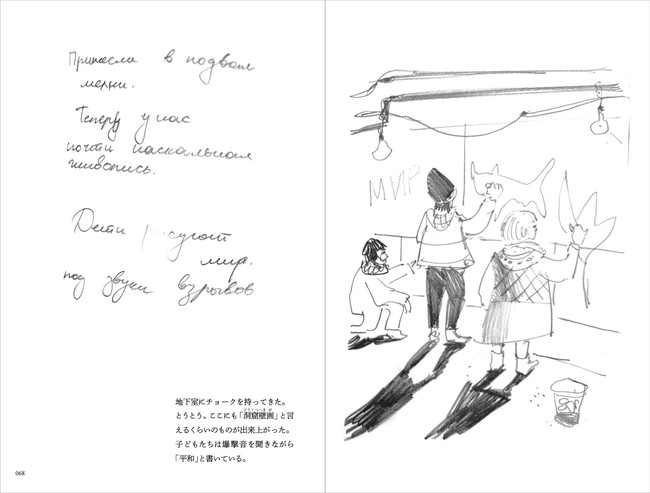 Принесли в подвал
мелки.
Теперь у нас
почти наскальная
живопись.
Дети рисуют
мир.
под звуки взрывов
地下室にチョークを持ってきた。
とうとう、ここにも「洞窟壁画」と言
えるくらいのものが出来上がった。
子どもたちは爆撃音を聞きながら
「平和」と書いている。
068
МИР